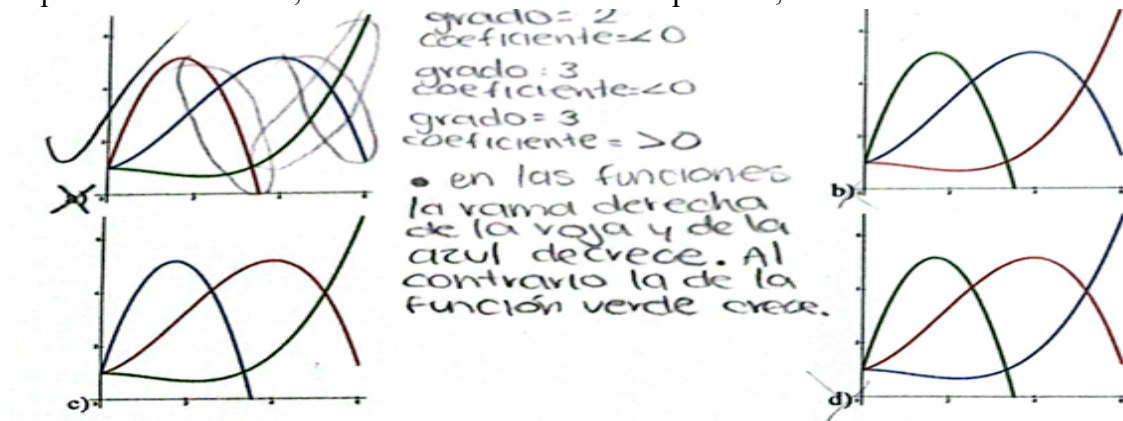 grado= 2
coeficiente=<0
grado: 3
coeficiente=<0
grado= 3
coeficiente = >0
• en las funciones
la rama derecha
de la roja y de la
azul decrece. Al
contrario la de la
función verde crece.
b)
c)
d)